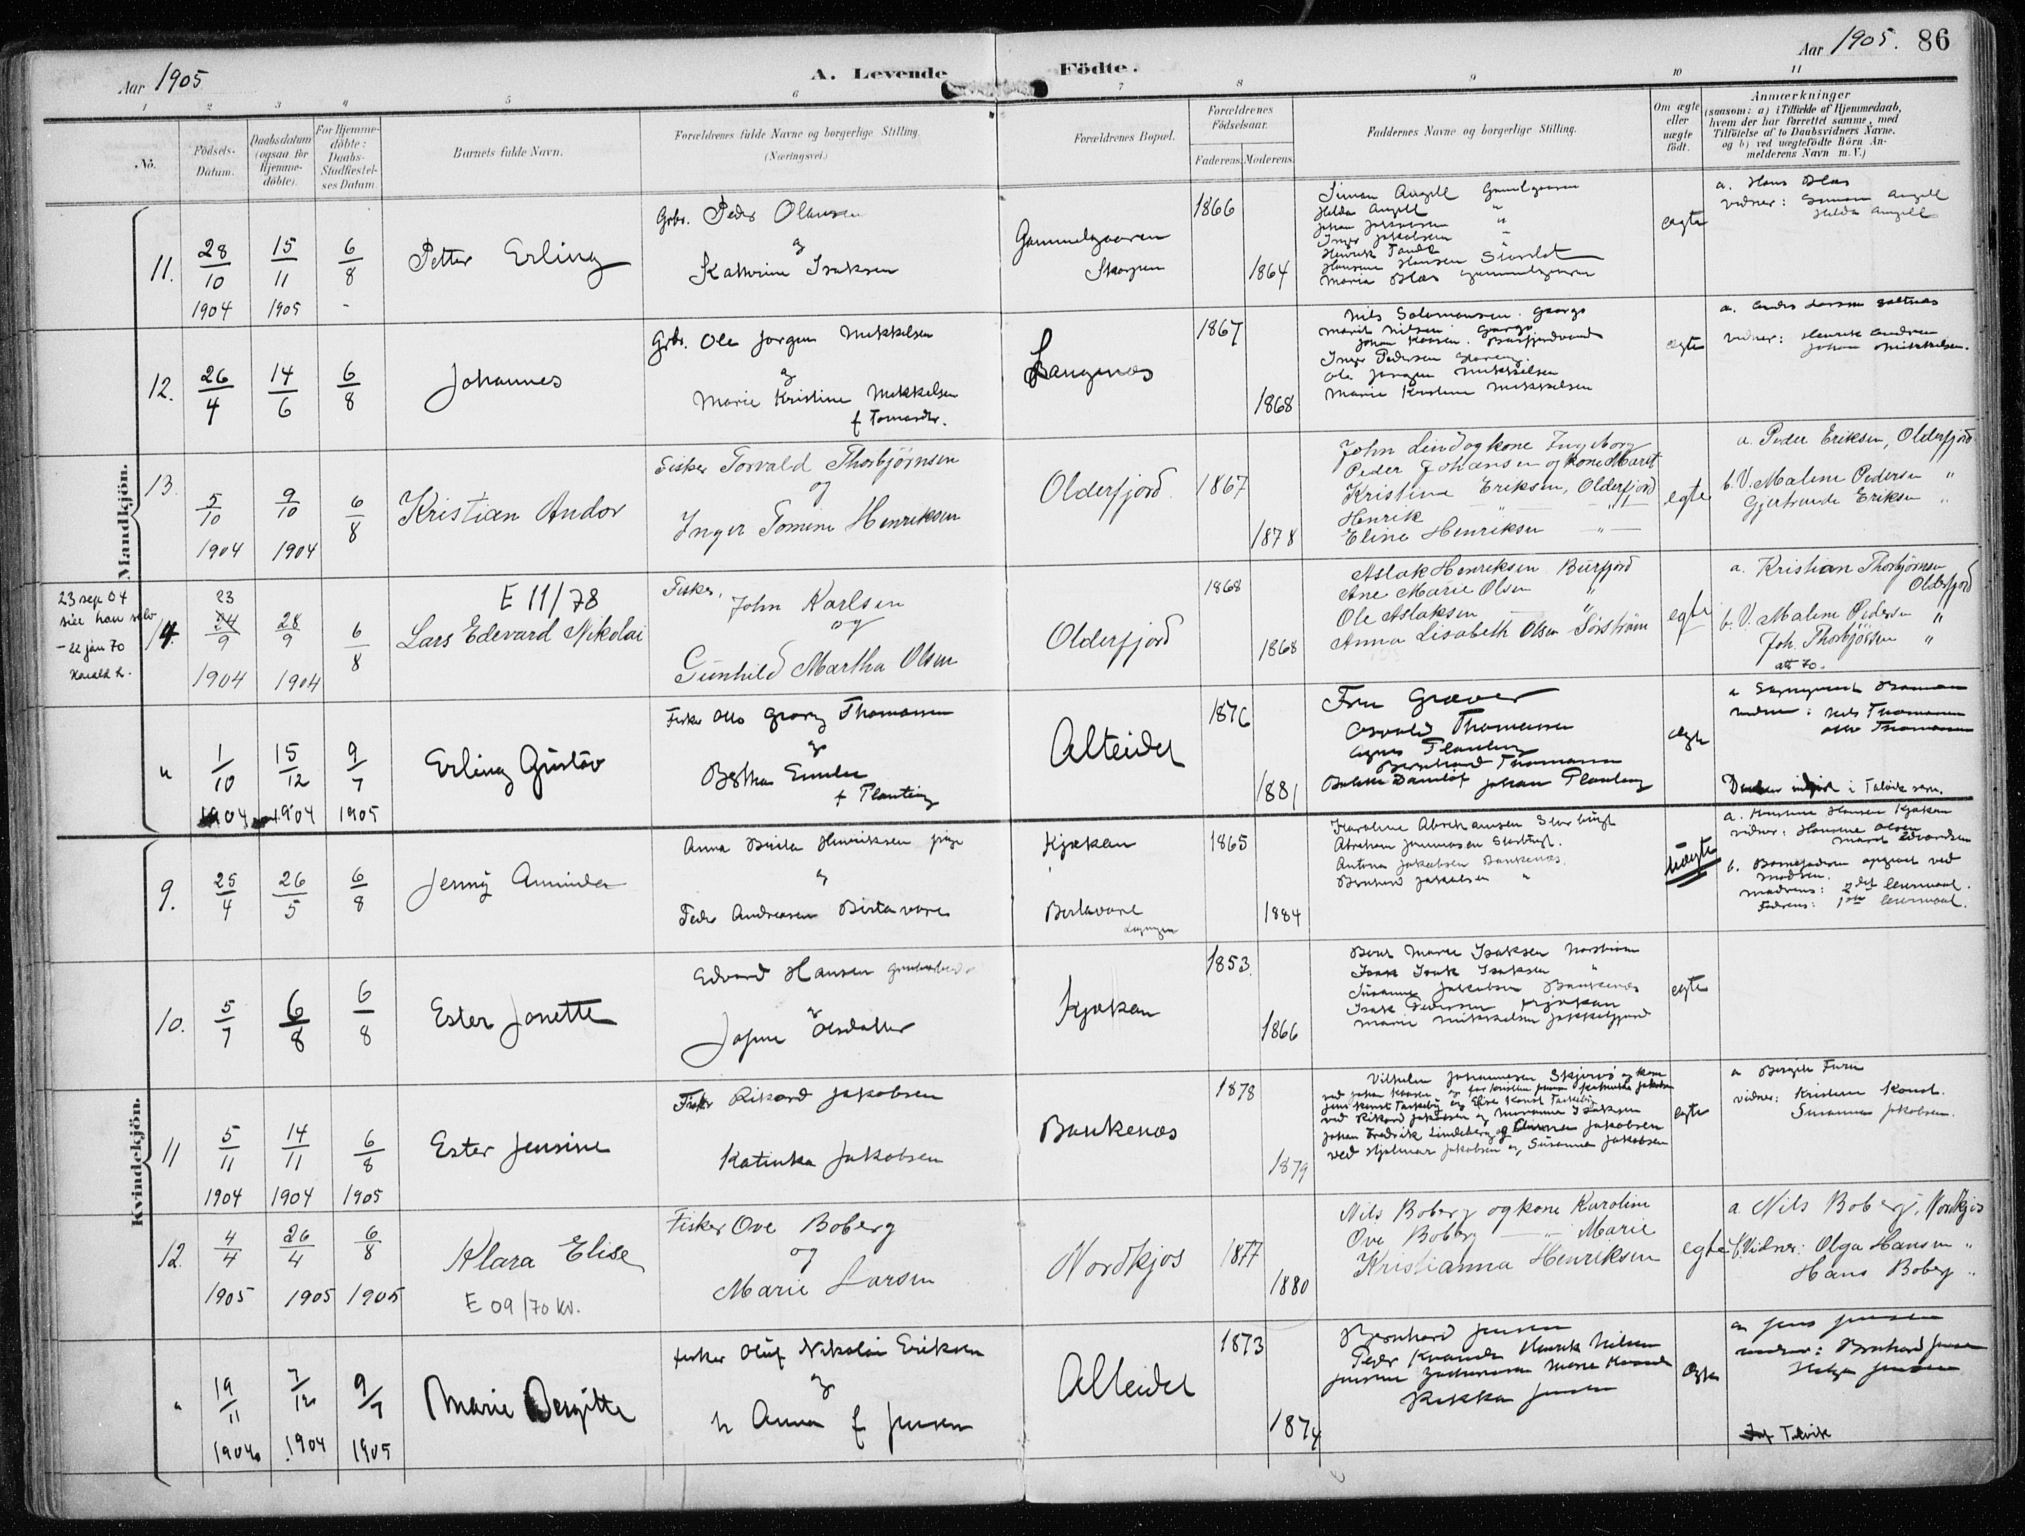 Aar 1905
A. Levende Födte.
Aar 1905. 86
1 2 3 4 5 6 7 8 9 10 11
No.
Födsels-Datum.
Daabsdatum (ogsaa for Hjemme-döbte).
For Hjemme-döbte: Daabs-Stadfæstel-ses Datum
Barnets fulde Navn.
Forældrenes fulde Navne og borgerlige Stilling.
(Næringsvei.)
Forældrenes Bopæl.
Forældrenes Födselsaar.
Faderens. Moderens.
Faddernes Navne og borgerlige Stilling.
Om ægte eller uægte födt.
Anmærkninger
(saasom: a) i Tilfælde af Hjemmedaab,
hvem der har forrettet samme, med
Tilföielse af to Daabsvidners Navne.
og b) ved uægtefödte Börn An-
melderens Navn m. V.)
Mandkjön.
11. 28/10 1904 15/11 1905 6/8 -
Petter Erling
Grbr. Peder Olausen
og
Kathrine Isaksen
Gammelgaaren
Skogen
1866
1864
Simon Angell Gammelgaaren
Hilda Angell "
Johan "
Inger Jakobsen "
Henrik
Hansine Hansen
Maria Blæs Gammelgaaren
egte
a. Hans Blæs
vidner: Simon Angell
Hilda Angell
12. 26/4 14/6 6/8
Johannes
Grbr. Ole Jørgen Mikkelsen
og
Marie Kristine Mikkelsen
f Tomasdtr.
Langenæs
1867
1868
Nils Salomonsen. Gargo
Marit Nilsen. Gargo
Johan
Inger Pedersen
Ole Jørgen Mikkelsen
Marie Kristine Mikkelsen
egte
a. Anders Larssen
vidner: Henrik Andersen
Johan Mikkelsen.
13. 5/10 1904 9/10 1904 6/8
Kristian Andor
Fisker Torvald Thorbjörnsen
og
Inger Tomine Henriksen
Olderfjord.
1867
1878
John Lind og kone Ingeborg
Peder Johansen og kone Marit
Kristine Eriksen, Olderfjord
Henrik
Eline Henriksen — " —
egte
a. Peder Eriksen, Olderfjord
b. V. Malene Pedersen "
Gjertrude Eriksen "
23 sep 04
sier han selv
- 22 jan 70
Harald L.
14. 23 24/9 1904 28/9 1904 6/8
E 11/78
Lars Edevard Nikolai
Fisker,
John Karlsen
og
Gunhild Martha Olsen
Olderfjord
1868
1868
Aslak Henriksen Burfjord
Ane Marie Olsen "
Ole Aslaksen — "
Anna Lisabeth Olsen Sörström
egte
a. Kristian Thorbjörnsen
Olderfjord
b. V. Malene Pedersen "
Joh. Thorbjörnsen "
att 70.
" 1/10 1904 15/12 1904 9/7 1905
Erling Gustav
Fisker Otto Georg Thomassen
og
Bertha Emilie
f Planting
Alteidet
1876
1881
Fru Græver
Osvald Thomassen
Agnes Planting
Bernhard Thomassen
Johan Planting
ægte
vidner: Nils Thomassen
Otto Thomassen
Daaben indført i Talvik
Kvindekjön.
9. 25/4 26/5 6/8
Jenny Aminda
Anna Birita Henriksen pige
og
Peder Andreasen Birtavare
Kjækan
Birtavare
Lyngen
1865
1884
Karoline Abrahamsen Storbugt
Abraham Storbugt.
Antona Jakobsen Bankenæs.
Bernhard Jakobsen "
Uægte
a. Hansen Kjækan
vidner: Hansine Olsen
Marit Edvardsen
b. Barnefadren opgivet ved
Modren.
Modrens: 2det leiermaal.
Fadrens: 1ste leiermaal.
10. 5/7 6/8 6/8
Ester Jonette
Edvard Hansen
og
Josine Olsdatter
Kjækan
1853.
1866
Berit Marie Isaksen
Isak Isak Isaksen "
Susanne Jakobsen Bankenæs
Isak Pedersen Kjækan
Marie Mikkelsen Jøkkelfjord
egte
11 5/11 1904 14/11 1904 6/8 1905
Ester Jensine
Fisker Rikard Jakobsen
Katinka Jakobsen
Bankenæs
1878
1879
Vilhelm Johannesen Skjervø og kone
Johan Fredrik Lindeberg og Jakobsen
ved Hjalmar Jakobsen og Susanna Jakobsen
egte
a Bergitte Furu
vidner: Kristine Konst.
Susanna Jakobsen.
12. 4/4 1905 26/4 1905 6/8 1905
Klara Elise
E 09/70 kv.
Fisker Ove Boberg
og
Marie Larsen
Nordkjos
1877
1880
Nils Boberg og kone Karoline
Ove Boberg — " — Marie
Kristianna Henriksen
egte
a. Nils Boberg, Nordkjos
b. Vidner: Olga Hansen "
Hans Boberg "
" 19/11 1904 7/12 1904 9/7 1905
Marie Bergitte
fisker Oluf Nikolai Eriksen
og
h Anna f Jensen
Alteidet
1873
1874
Bernhard Jensen
Peder Kvænde Henrik Nilsen
Jensine Marie
Rikka Jensen
Ægte
a Jens Jensen
vidner: Bernhard Jensen
Helga Jensen
Talvik